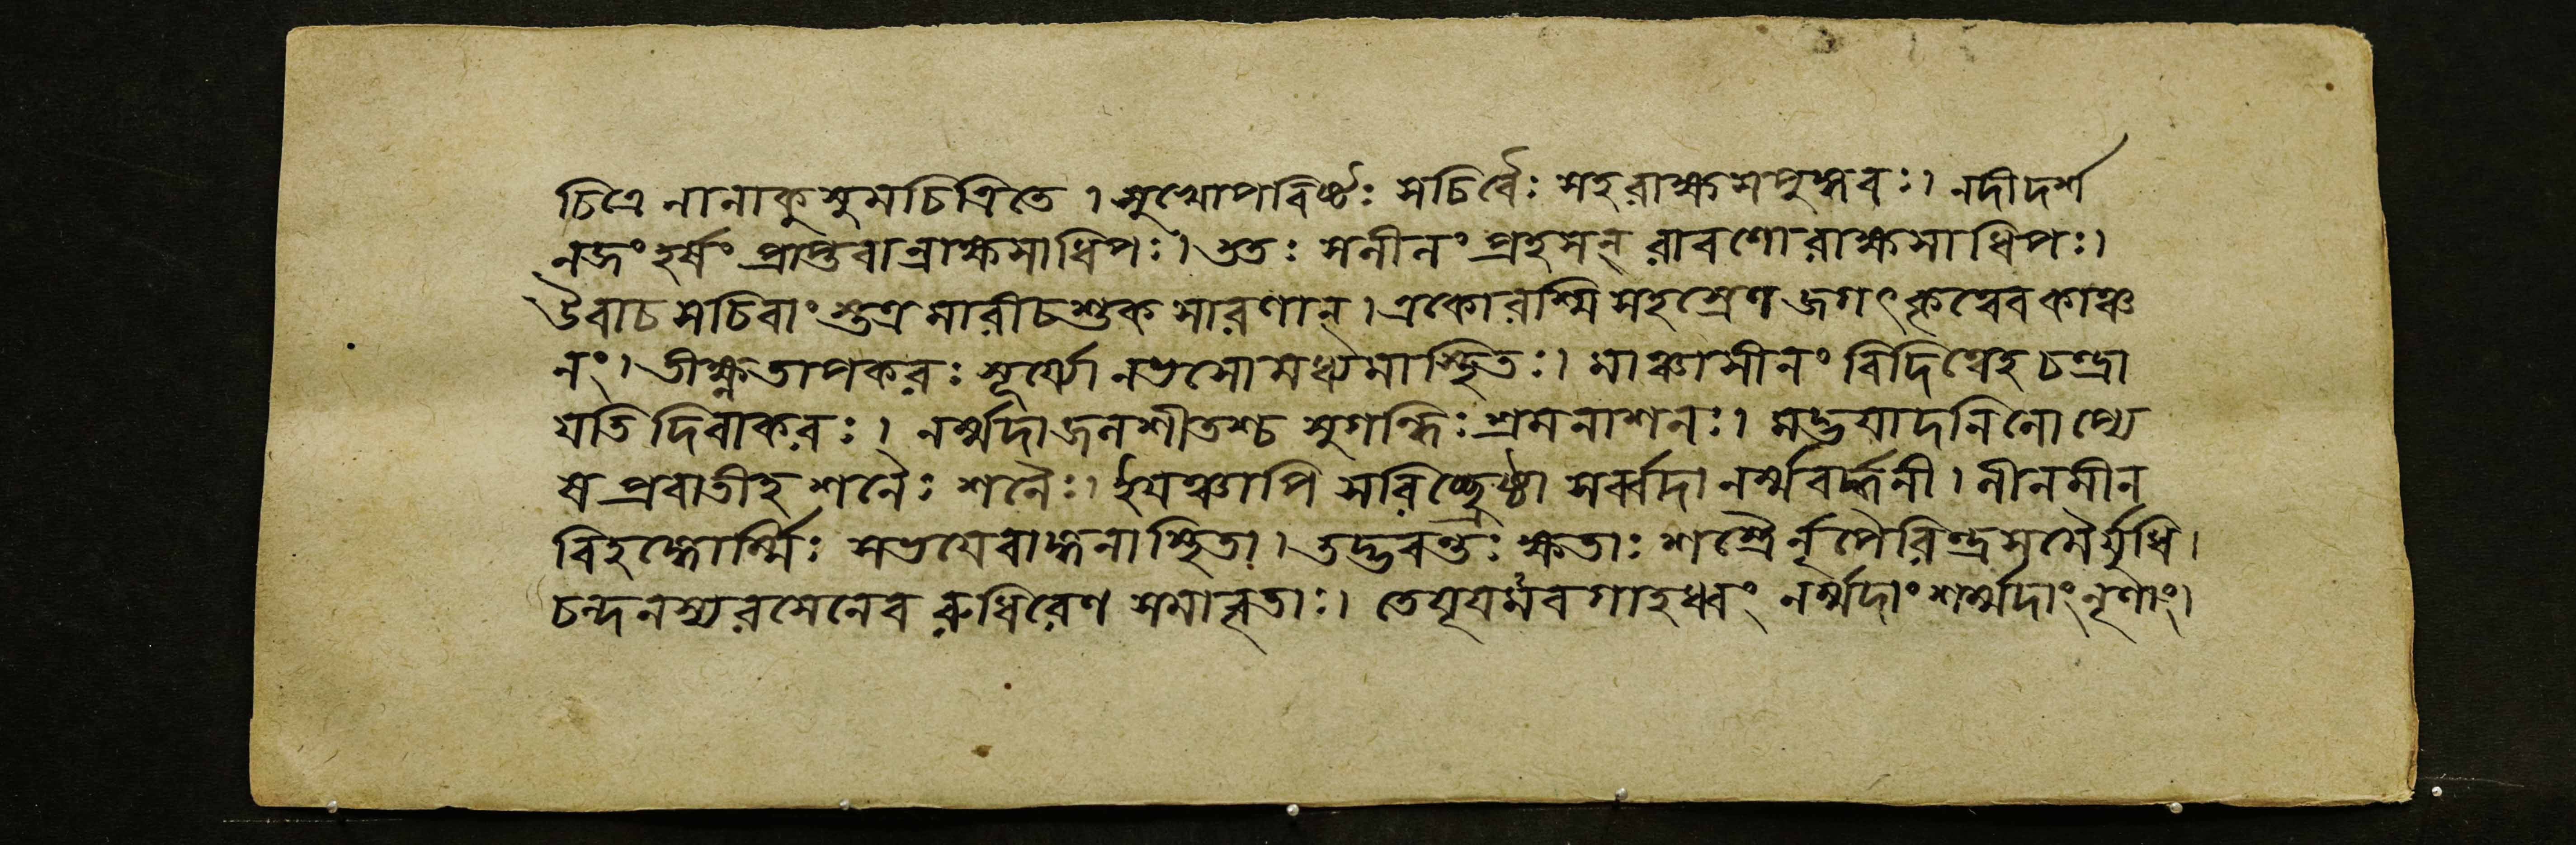 চিত্রে নানাকুসুমচিত্রিতে । সুখোপবিষ্টঃ সচিবৈঃ সহরাক্ষসপুঙ্গবঃ। নদীদর্শ
নজং হর্ষং প্রাপ্তবান্রাক্ষসাধিপঃ। ততঃ সলীলং প্রহসন্ রাবণোরাক্ষসাধিপঃ।
উবাচ সচিবাং শুত্র মারীচশুক সারণান্। একোরশ্মি সহস্রেণ জগৎকৃত্বেব কাঞ্চ
নং। তীক্ষ্ণতাপকরঃ সূর্য্যো নভসোমধ্যমাস্থিতঃ। মাঞ্চাসীনং বিদিত্বেহ চন্দ্রা
যতি দিবাকরঃ। নর্ম্মদাজলশীতশ্চ সুগন্ধিঃ শ্রমনাশনঃ। মদ্ভয়াদনিলোপ্যে
ষ প্রবাতীহ শনৈঃ শনৈঃ। ইয়ঞ্চাপি সরিচ্ছ্রেষ্ঠা সর্ব্বদা নর্ম্মবর্দ্ধনী। লীনমীন
বিহঙ্গোর্ম্মিঃ সভয়েবাঙ্গনাস্থিতা। তদ্ভবন্তঃ ক্ষতাঃ শস্ত্রৈর্নৃপৈরিন্দ্রসমৈর্যুধি।
চন্দনস্যরসেনেব রুধিরেণ সমালৃতাঃ। তেযূয়মবগাহধ্বং নর্ম্মদাং শর্ম্মদাং নৃণাং।